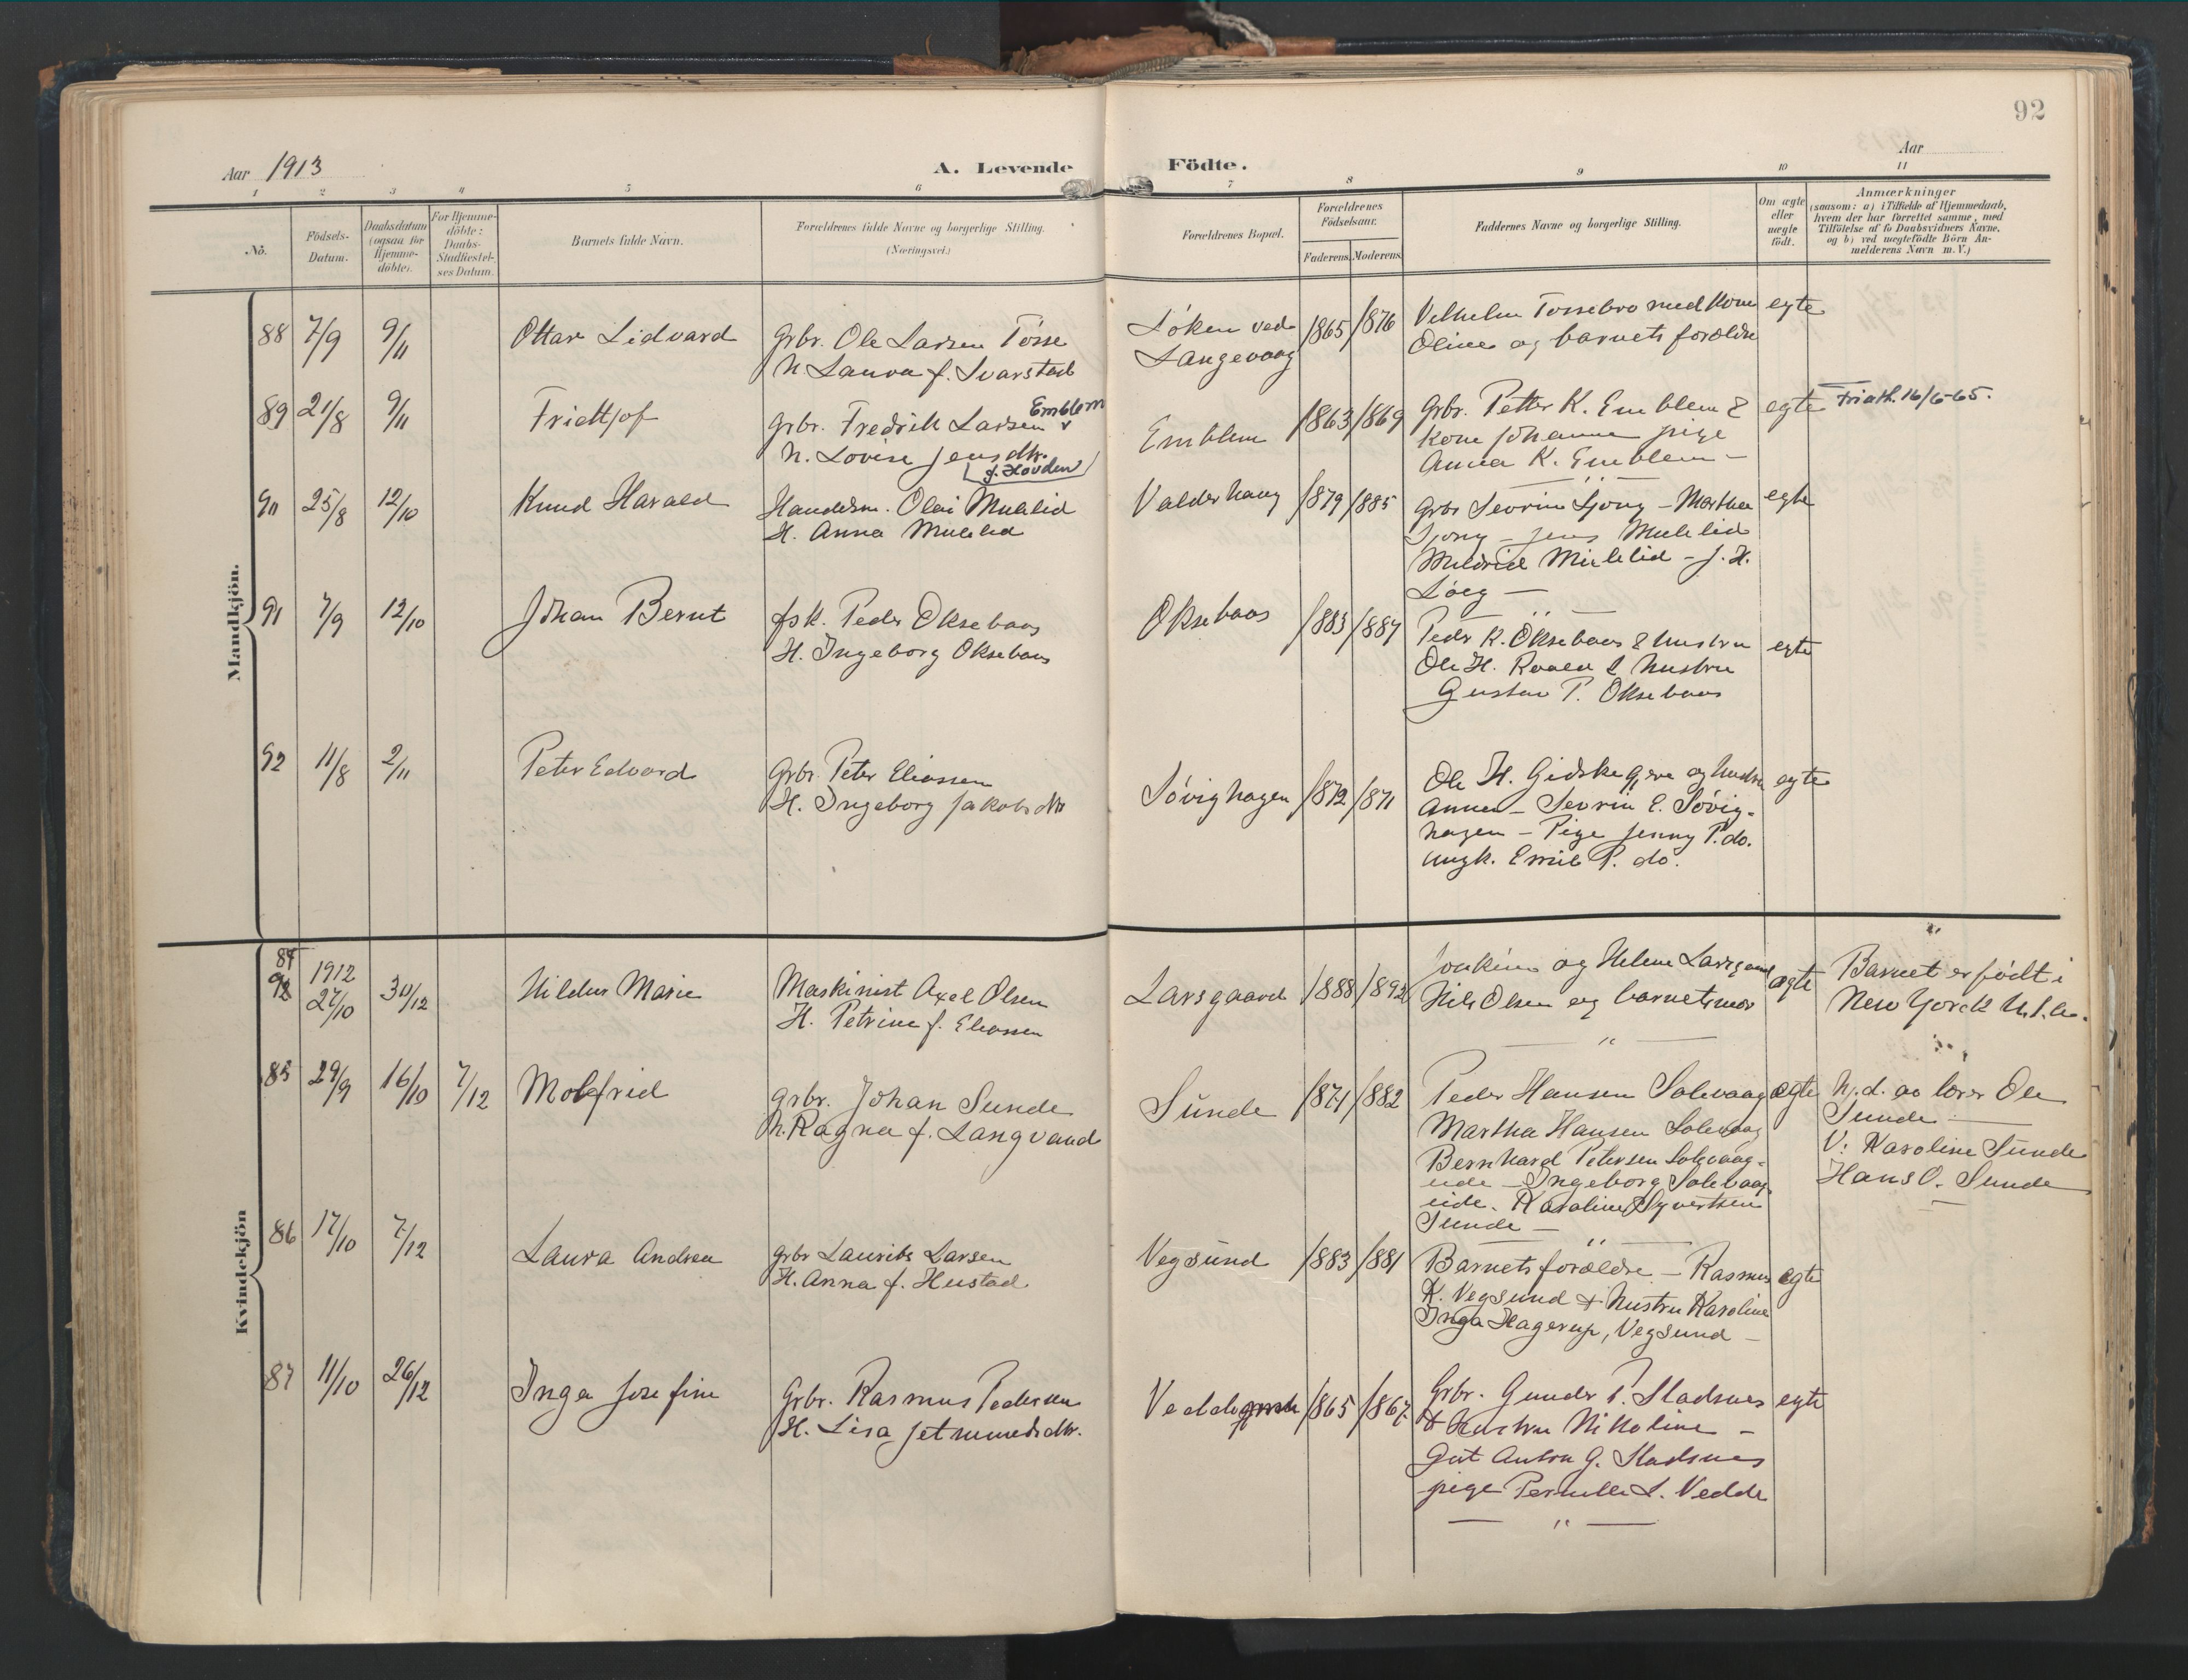 92
Aar 1913
A. Levende Födte.
Aar
1 2 3 4 5 6 7 8 9 10 11
No.
Födsels-
Datum.
Daabsdatum
(ogsaa for
Hjemme-
döbte).
For Hjemme-
döbte:
Daabs-
Stadfæstel-
ses Datum.
Barnets fulde Navn.
Forældrenes fulde Navne og borgerlige Stilling.
(Næringsvei.)
Forældrenes Bopæl.
Forældrenes
Födselsaar.
Faderens. Moderens.
Faddernes Navne og borgerlige Stilling.
Om ægte
eller
uægte
födt.
Anmærkninger
(saasom: a) i Tilfælde af Hjemmedaab,
hvem der har forrettet samme, med
Tilföielse af to Daabsvidners Navne,
og b) ved uegtefödte Börn An-
melderens Navn m.V.)
Mandkjön.
88 7/9 9/11 Ottar Lidvard
Grbr. Ole Larsen Tösse
H Laura f. Svarstad
Löken ved
Langevaag
1865 1876
Vilhelm Tossebro med Kone
Oline og barnets forældre
egte
89 21/8 9/11 Friettjof
Grbr. Fredrik Larsen Emblem
H. Lovise Jensdtr.
(f. Hovden)
Emblem
1863 1869
Grbr. Petter K. Emblem &
Kone Johanne pige
Anna K. Emblem —
egte
16/6-65.
90 25/8 12/10 Knud Harald
Handelsm. Olai Mulelid
H. Anna Mulelid
Valderhaug
1879 1885
Grbr Sevrin Gjong – Marthea
Gjong – Jens Mulelid
Mulelid – J. H.
egte
91 7/9 12/10 Johan Bernt
fsk. Peder Oksebaas
H. Ingeborg Oksebaas
Oksebaas
1883 1887
Peder K. Oksebaas & hustru
Ole H. Roald & hustru
Gustav P. Oksebaas
egte
92 11/8 2/11 Peter Edvard
Grbr. Peter Eliassen
H. Ingeborg Jakobsdtr
Sövighagen
1872 1871
Ole H. Gidske og hustru
Anna – Sevrin E. Sövig-
hagen – Pige Jenny P. do.
ungk. Emil P. do.
egte
Kvindekjön
84
1912
27/10 30/12 Hildur Marie
Maskinist Axel Olsen
H. Petrine f. Eliassen
Larsgaard
1888 1892
Joakim og Helene Larsgaard
Nils Olsen og barnets mor
ægte
Barnet er födt i
New Yorck U.S.A.
85 29/9 16/10 7/12 Molfrid
grbr. Johan Sunde
h. Ragna f. Langvand
Sunde
1871 1882
Peder Hansen Solevaag
Martha Hansen Solevaag
Bernhard Petersen Solevaag-
eide – Ingeborg Solevaag-
eide. Karoline Syvertsen
Sunde —
ægte
hj.d. av lærer Ole
Sunde —
V: Karoline Sunde
Hans O. Sunde
86 17/10 7/12 Laura Andrea
grbr Laurits Larsen
H. Anna f. Hustad
Vegsund
1883 1881
Barnets forældre – Rasmus
K. Vegsund & hustru Karoline
Inga Hagerup, Vegsund –
ægte
87 11/10 26/12 Inga Josefine
Grbr. Rasmus Pedersen
H. Lisa Jetmundsdtr.
1865 1867
Grbr. Gunder P. Stadsnes
& hustru Nikoline –
Gut Anton G. Stadsnes
pige Pernille L. Vedde
egte